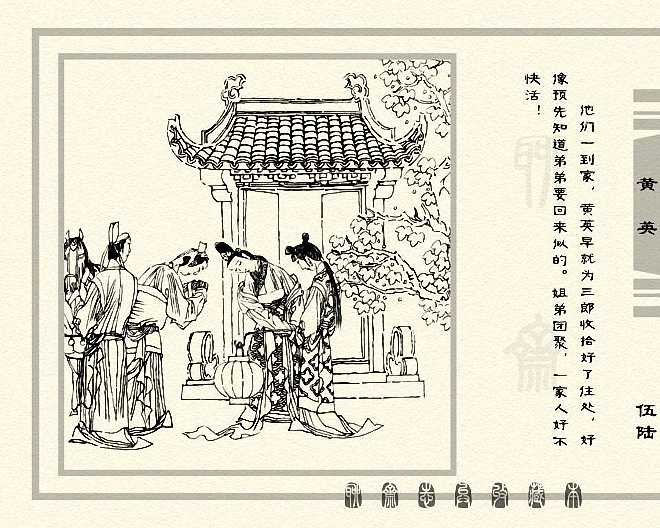 他们一到家，黄英早就为三郎收拾好了住处，好
像预先知道弟弟要回来似的。姐弟团聚，一家人好不
快活！
黄英
伍陆
聊斋志异收藏本